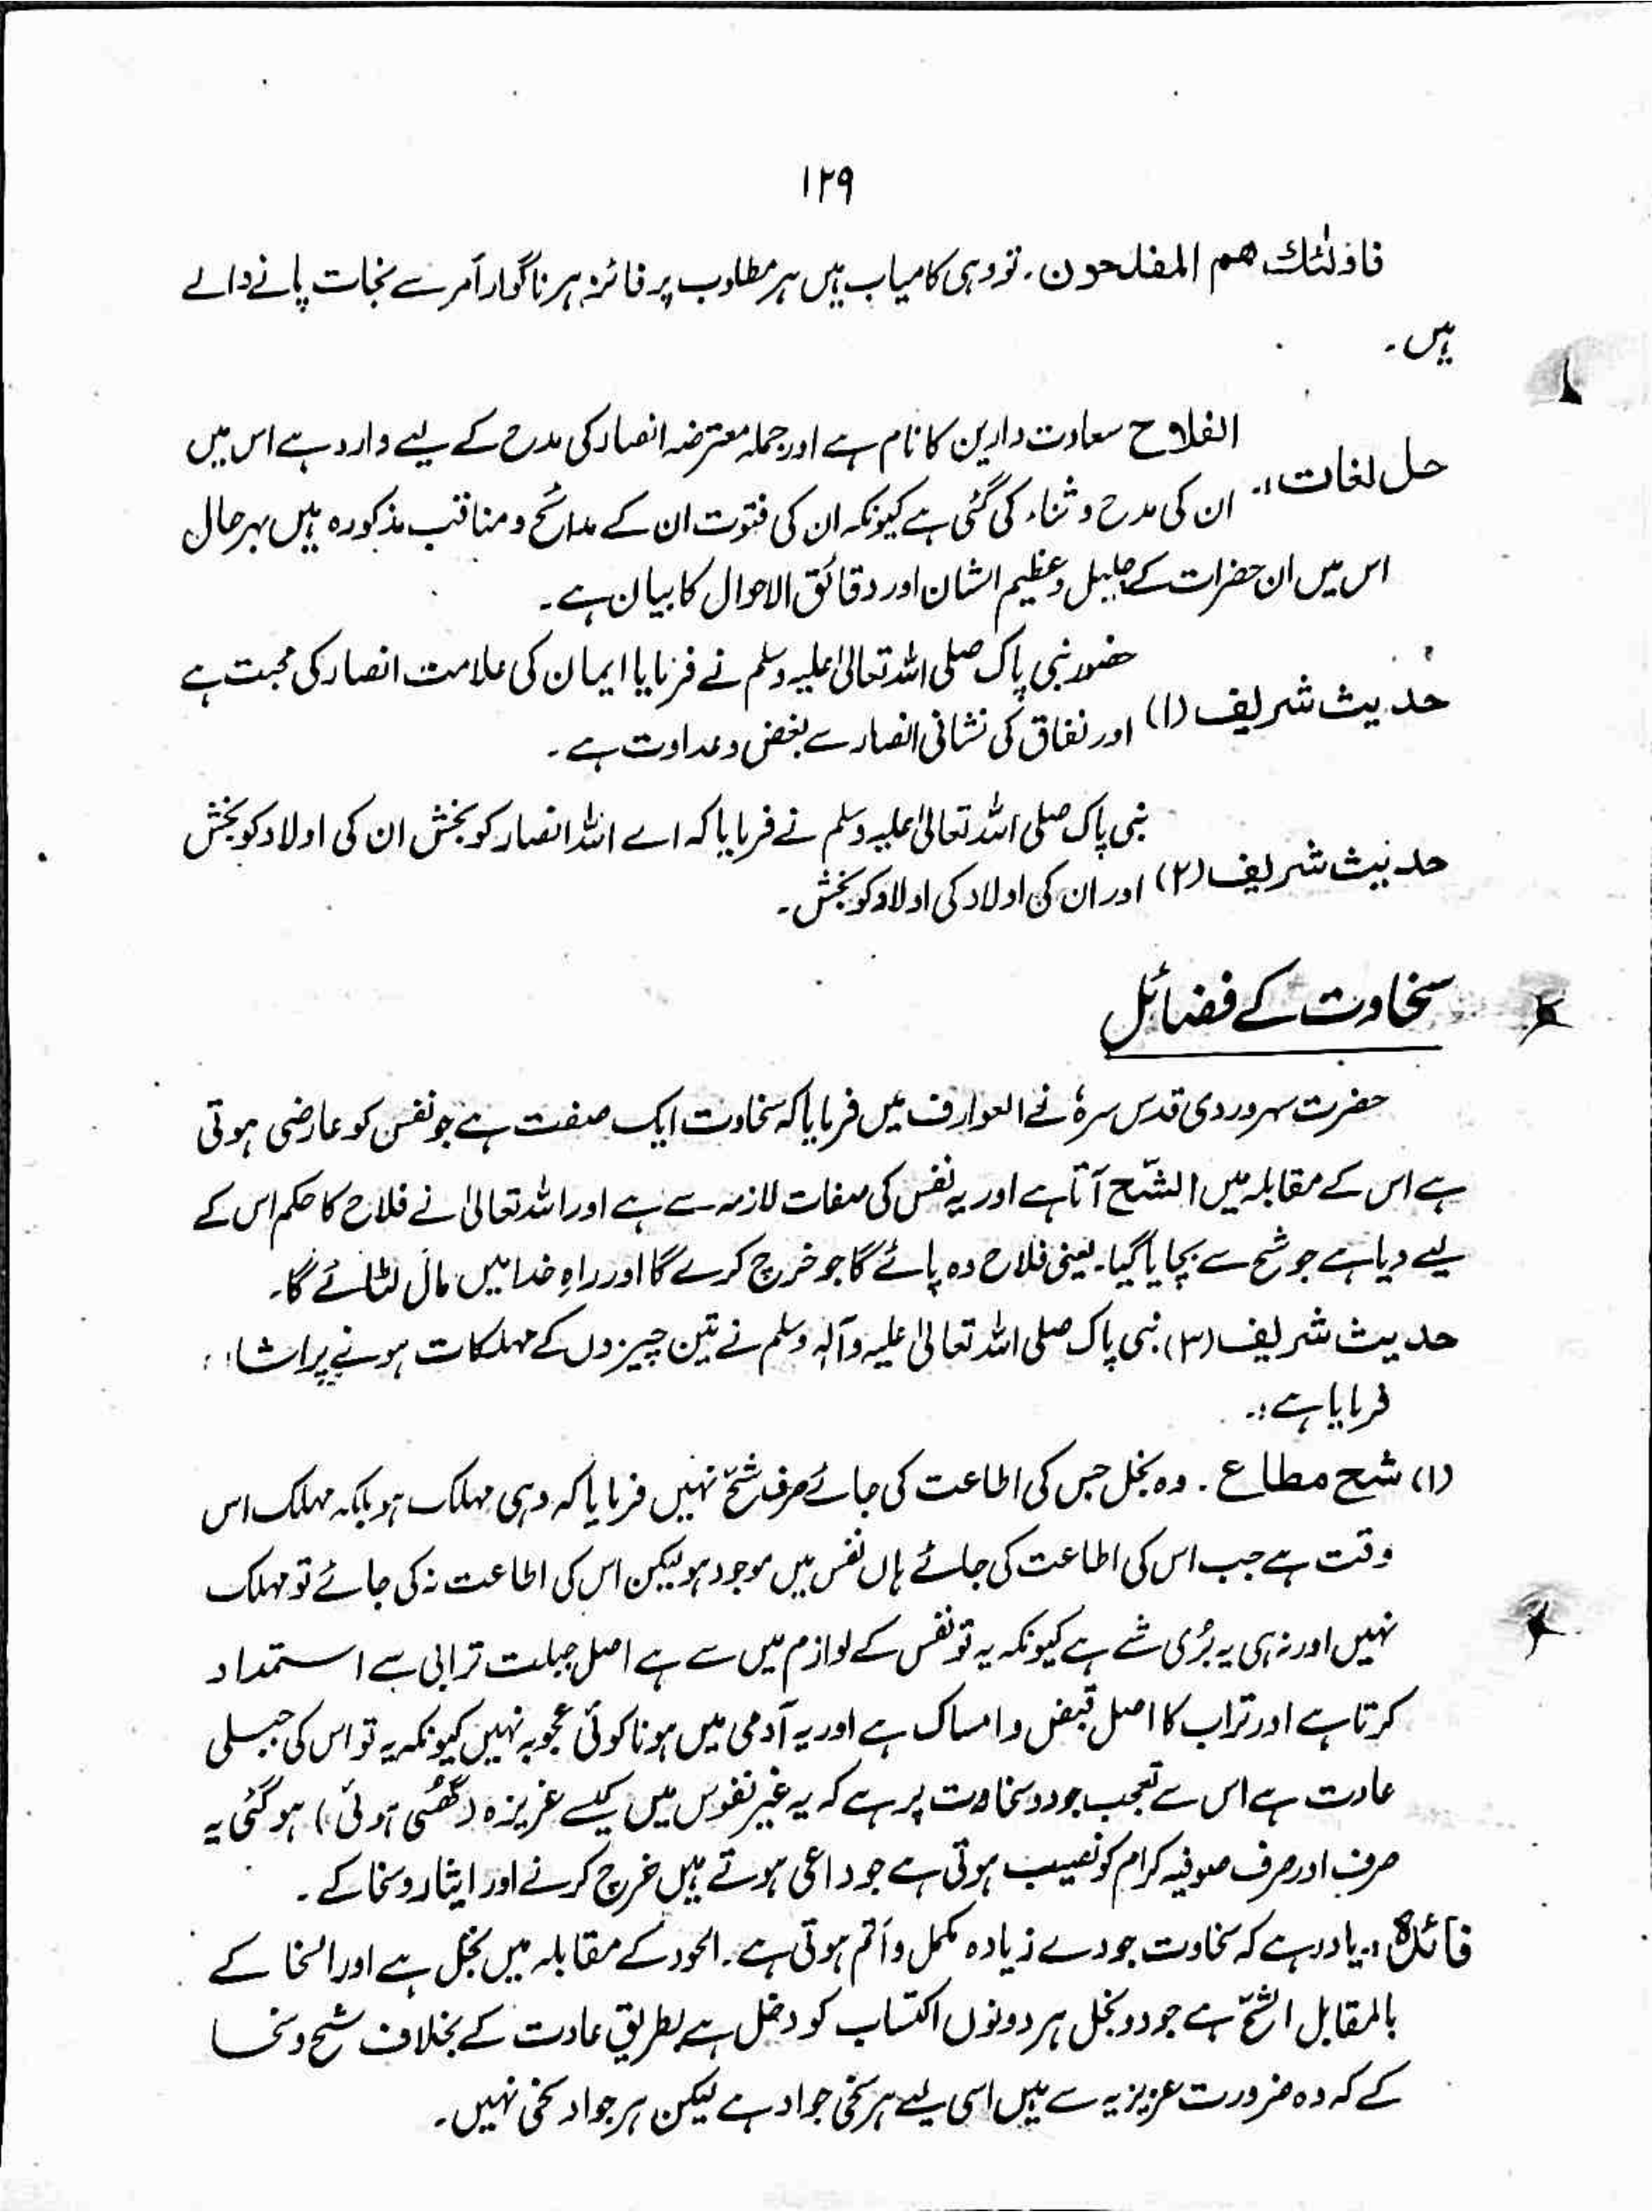 ۱۲۹
فاولٰئك هم المفلحون۔ تو وہی کامیاب ہیں ہر مطلوب پر فائز ہر ناگوار اَمر سے نجات پانے والے
ہیں۔
الفلاح سعادت دارین کا نام ہے اور جملہ معترضہ انصار کی مدح کے لیے وارد ہے اس میں
حل لغات:۔ ان کی مدح و ثناء کی گئی ہے کیونکہ ان کی فتوت ان کے مدائح و مناقب مذکورہ ہیں بہرحال
اس میں ان حضرات کے جلیل و عظیم الشان اور دقائق الاحوال کا بیان ہے۔
حضور نبی پاک صلی اللہ تعالیٰ علیہ وسلم نے فرمایا ایمان کی علامت انصار کی محبت ہے
حدیث شریف (۱) اور نفاق کی نشانی انصار سے بغض و عداوت ہے۔
نبی پاک صلی اللہ تعالیٰ علیہ وسلم نے فرمایا کہ اے اللہ انصار کو بخش ان کی اولاد کو بخش
حدیث شریف (۲) اور ان کی اولاد کی اولاد کو بخش۔
سخاوت کے فضائل
حضرت سہروردی قدس سرہٗ نے العوارف میں فرمایا کہ سخاوت ایک صفت ہے جو نفس کو عارضی ہوتی
ہے اس کے مقابلہ میں الشّح آتا ہے اور یہ نفس کی صفات لازمہ سے ہے اور اللہ تعالیٰ نے فلاح کا حکم اس کے
لیے دیا ہے جو شح سے بچایا گیا۔ یعنی فلاح وہ پائے گا جو خرچ کرے گا اور راہِ خدا میں مال لٹائے گا۔
حدیث شریف (۳) نبی پاک صلی اللہ تعالیٰ علیہ وآلہ وسلم نے تین چیزوں کے مہلکات ہونے پر اشا
فرمایا ہے:۔
(۱) شح مطاع۔ وہ بخل جس کی اطاعت کی جائے صرف شحّ نہیں فرمایا کہ وہی مہلک ہو بلکہ مہلک اس
وقت ہے جب اس کی اطاعت کی جائے ہاں نفس میں موجود ہو لیکن اس کی اطاعت نہ کی جائے تو مہلک
نہیں اور نہ ہی یہ بُری شے ہے کیونکہ یہ تو نفس کے لوازم میں سے ہے اصل جبلت ترابی سے استمداد
کرتا ہے اور تراب کا اصل قبض و امساک ہے اور یہ آدمی میں ہونا کوئی عجوبہ نہیں کیونکہ یہ تو اس کی جبلی
عادت ہے اس سے تعجب جود و سخاوت پر ہے کہ یہ غیر نفوس میں کیسے غریزہ (گھسی ہوئی) ہو گئی یہ
صرف اور صرف صوفیہ کرام کو نصیب ہوتی ہے جو داعی ہوتے ہیں خرچ کرنے اور ایثار و سخا کے۔
فائدہ:۔ یاد رہے کہ سخاوت جود سے زیادہ مکمل و اَتم ہوتی ہے۔ الجود کے مقابلہ میں بخل ہے اور السخا کے
بالمقابل الشحّ ہے جود و بخل ہر دونوں اکتساب کو دخل ہے بطریق عادت کے بخلاف شح و سخا
کے کہ وہ ضرورت عزیزیہ سے ہیں اسی لیے ہر سخی جواد ہے لیکن ہر جواد سخی نہیں۔